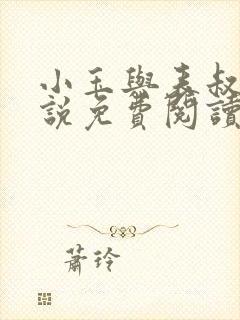 小玉與表叔
說免費閱讀
蕭玲